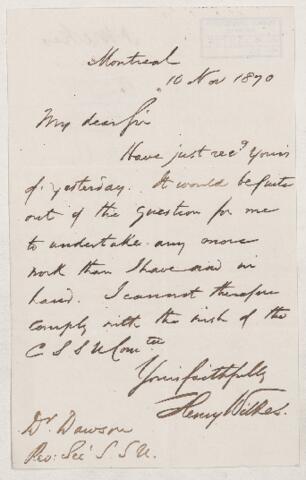 Montreal
10 Nov 1870
My dear Sir
Have just rec^d Yours
of yesterday. It would be quite
out of the question for me
to undertake any more
work than I have now in
hand. I cannot therefore
comply with the wish of the
C S S U Com^tee
Yours faithfully
Henry Wilkes.
Dr Dawson
Rec: Sec S S U.